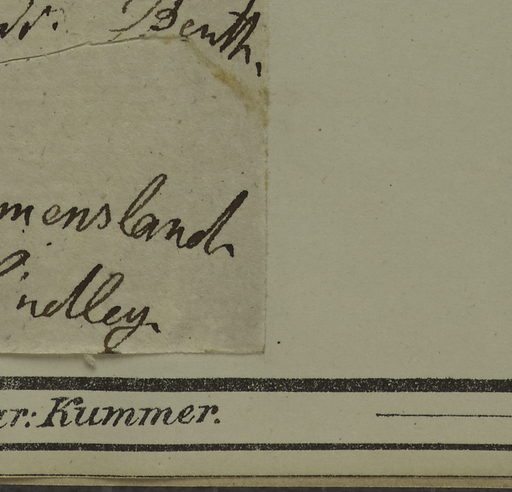 Benth.
mensland
Lindley.
ar: Kummer.